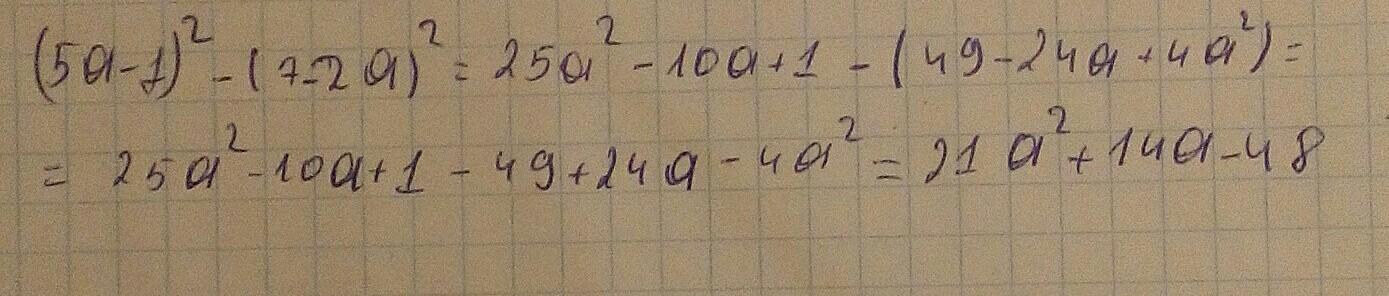 (5a-1)² - (7-2a)² = 25a² - 10a + 1 - (49 - 24a + 4a²) =
= 25a² - 10a + 1 - 49 + 24a - 4a² = 21a² + 14a - 48